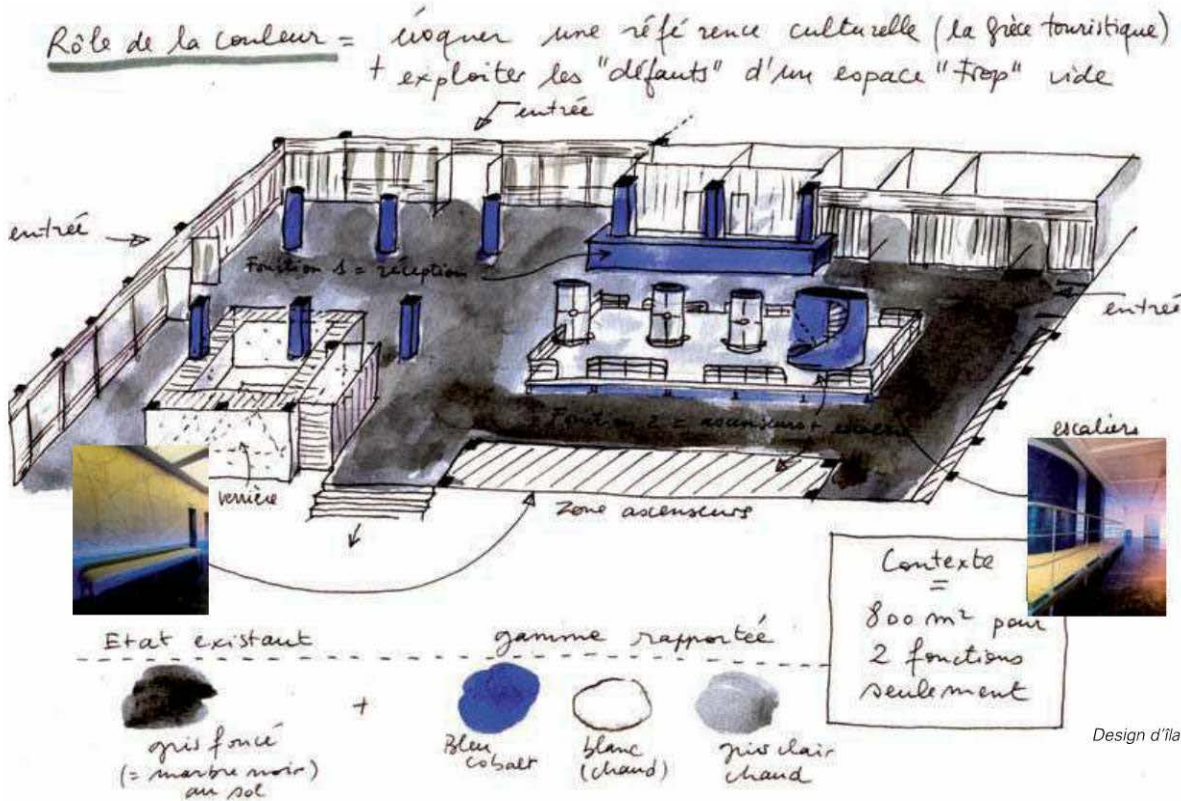 Rôle de la couleur = évoquer une référence culturelle (la grèce touristique)
+ exploiter les "défauts" d'un espace "trop" vide
entrée
entrée
Fonction 1 = réception
entrée
Fonction 2 = ascenseurs + escaliers
escaliers
verrière
zone ascenseurs
Contexte
=
800 m² pour
2 fonctions
seulement
Etat existant
gamme rapportée
+
gris foncé
(= marbre noir)
au sol
Bleu
cobalt
blanc
(chaud)
gris clair
chaud
Design d'îla